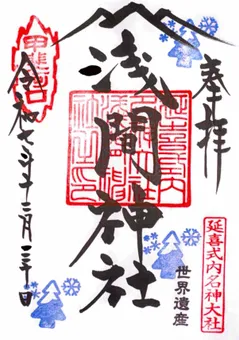 奉拝
浅間神社
延喜式内名神大社
世界遺産
令和七年十二月三十日